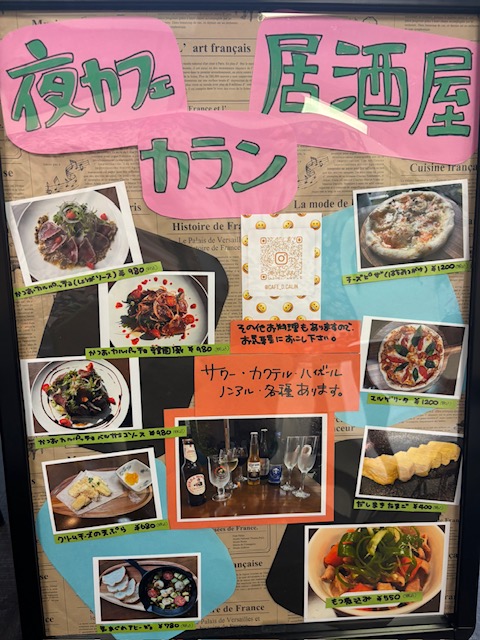 L' art français
夜カフェ
居酒屋
カラン
Cuisine frança
La mode de
Histoire de Fra
Le Palais de Versailles
@CAFE_D.CALIN
かつおカルパッチョ(しょうがソース) ¥980
チーズピザ(はちみつがけ) ¥1200
かつおカルパッチョ 韓国風 ¥980
その他お料理もありますので、
お気軽にお越し下さい。
サワー・カクテル・ハイボール
ノンアル・各種あります。
マルゲリータ ¥1200
かつおカルパッチョ バルサミコソース ¥980
だしまきたまご ¥400
クリームチーズの天ぷら ¥680
¥780
もつ煮込み ¥550